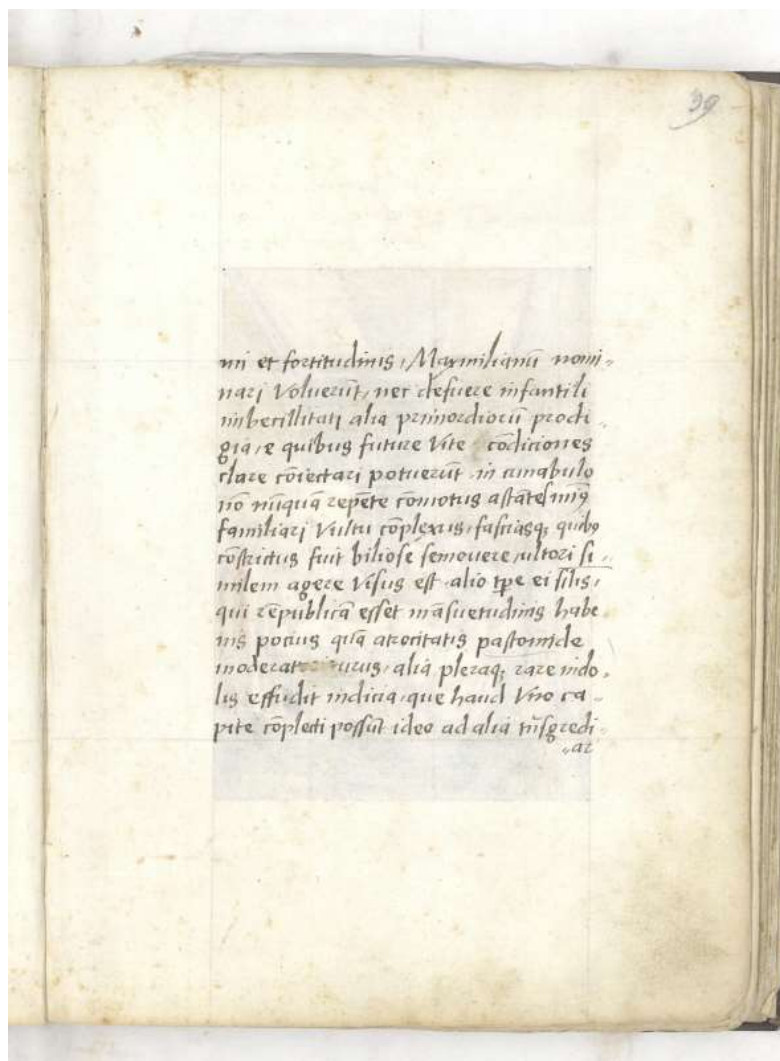 39
mi et fortitudinis, Maximilianū nomi„
nari Voluerūt, nec defuere infantili
imbecillitati alia primordiorū prodi„
gia, e quibus future Vite cōdiciones
clare cōiectari potuerūt, in cunabulo
nō nūquā repēte cōmotus astātes
familiari Vultu cōplexus, fasciasqꝫ quibꝰ
cōstrictus fuit biliose semovere, ultori si„
milem agere Visus est, alio tpe ei silis,
qui rēpublicā esset māsuetudinis habe„
nis pocius quā atrocitatis pastomide
alia pleraqꝫ rare indo„
lis effudit indicia, que haud Vno ca„
pite cōplecti possūt ideo ad alia trāsgredi„
„ar